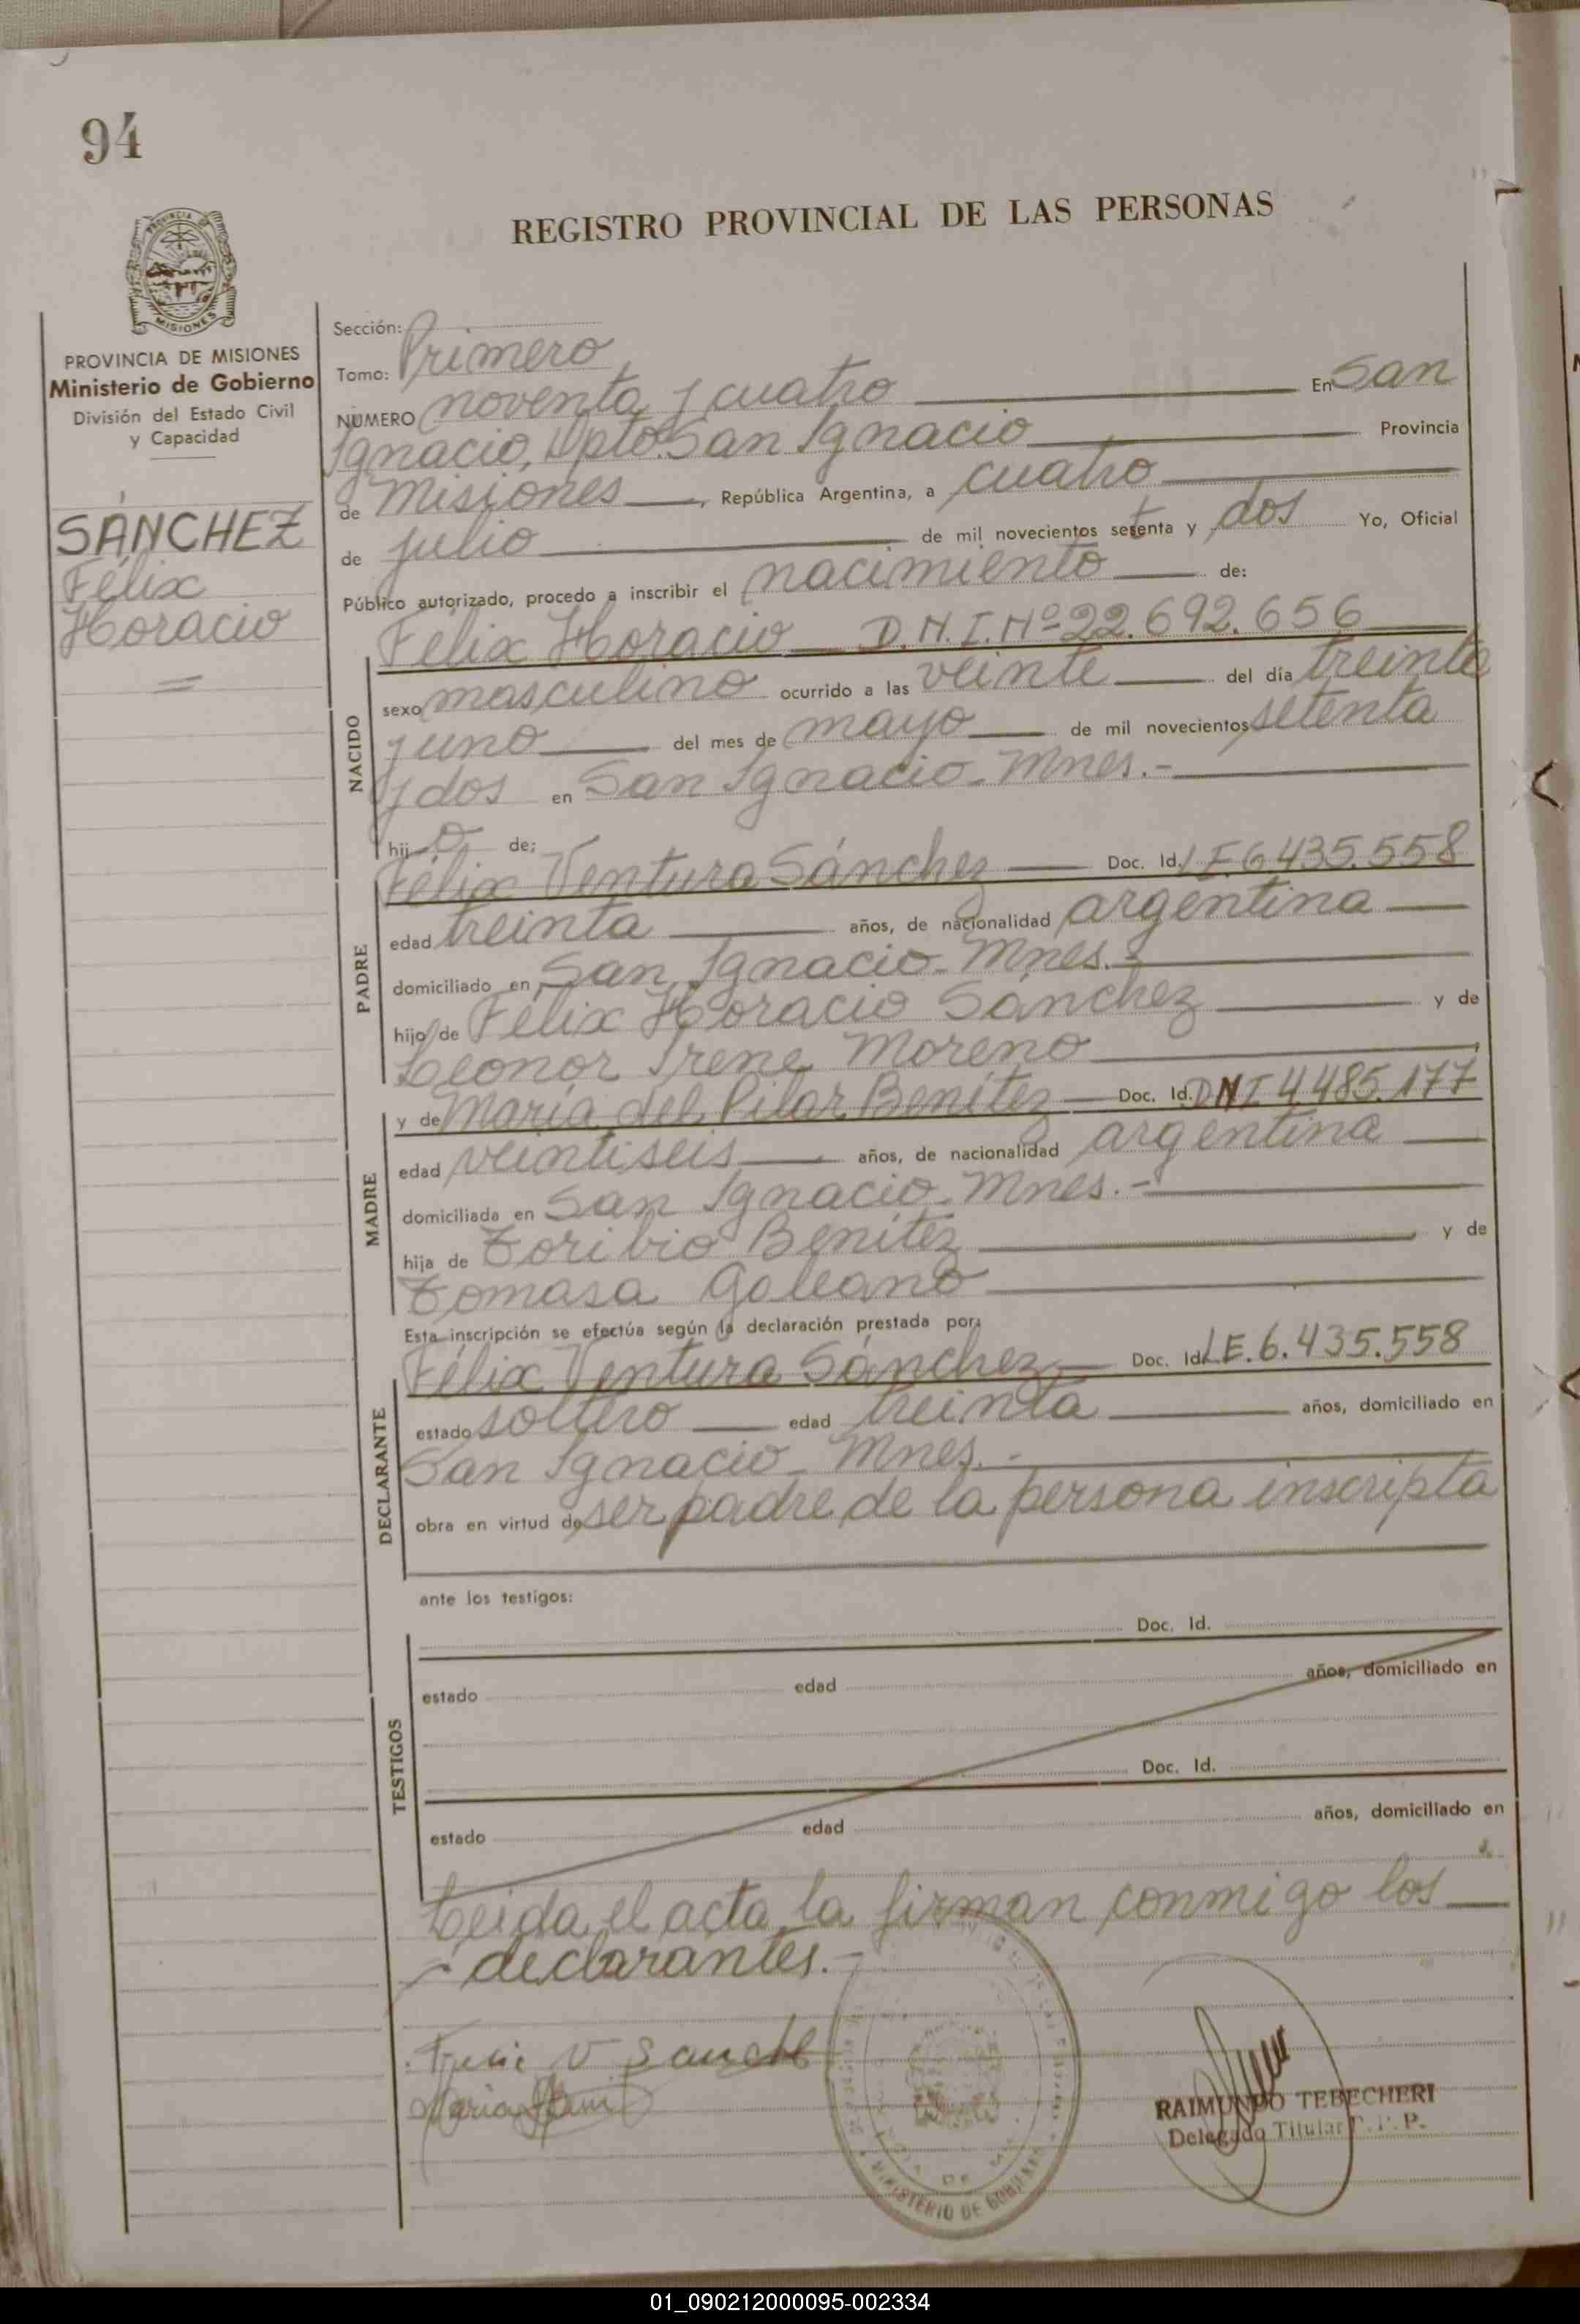 94
REGISTRO PROVINCIAL DE LAS PERSONAS
PROVINCIA DE
MISIONES
PROVINCIA DE MISIONES
Ministerio de Gobierno
División del Estado Civil
y Capacidad
SÁNCHEZ
Félix
Horacio
Sección:
Tomo: Primero
NUMERO noventa y cuatro En San
Ignacio, Dpto. San Ignacio Provincia
de Misiones, República Argentina, a cuatro
de julio de mil novecientos setenta y dos Yo, Oficial
Público autorizado, procedo a inscribir el nacimiento de:
Félix Horacio D.N.I. Nº 22.692.656
NACIDO
sexo masculino ocurrido a las veinte del día treinta
y uno del mes de mayo de mil novecientos setenta
y dos en San Ignacio - Mnes.-
hijo de:
Félix Ventura Sánchez Doc. Id. L.E. 6.435.558
PADRE
edad treinta años, de nacionalidad argentina
domiciliado en San Ignacio - Mnes.-
hijo de Félix Horacio Sánchez y de
Leonor Irene Moreno
y de María del Pilar Benítez Doc. Id. DNI 4.485.177
MADRE
edad veintiseis años, de nacionalidad argentina
domiciliada en San Ignacio - Mnes.-
hija de Toribio Benítez y de
Tomasa Galeano
Esta inscripción se efectúa según la declaración prestada por:
Félix Ventura Sánchez Doc. Id. L.E. 6.435.558
DECLARANTE
estado soltero edad treinta años, domiciliado en
San Ignacio - Mnes.-
obra en virtud de ser padre de la persona inscripta
ante los testigos:
Doc. Id.
TESTIGOS
estado edad años, domiciliado en
Doc. Id.
estado edad años, domiciliado en
Leida el acta la firman conmigo los
declarantes.-
V Sanche
Maria
MINISTERIO DE GOBIERNO
RAIMUNDO TEBECHERI
Delegado Titular
01_090212000095-002334